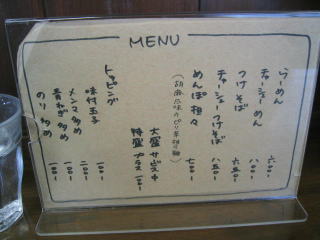 MENU
らーめん 六〇〇
チャーシューめん 八〇〇
つけそば 六五〇
チャーシューつけそば 八五〇
めんぽ担々 七〇〇
大盛 サービス中
特盛 プラス一〇〇
トッピング
味付玉子 一〇〇
メンマ多め 二〇〇
青ねぎ多め 一〇〇
のり多め 一〇〇